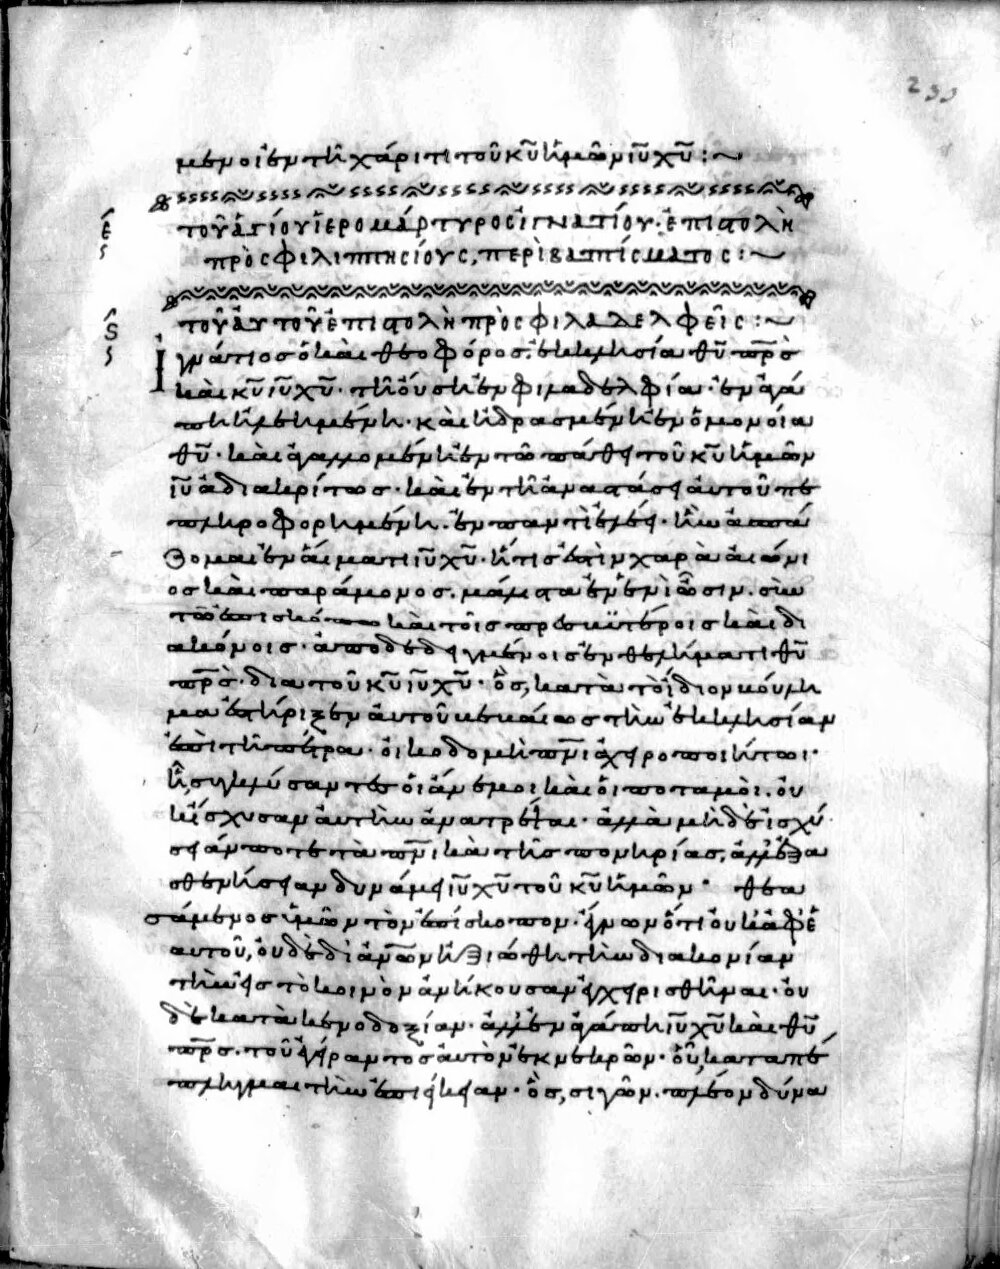 233
μενοι ἐν τῆ χάριτι τοῦ κυ ἡμῶν ιυ χυ :~
ε
τοῦ ἁγίου ἱερομάρτυρος ἰγνατίου· ἐπιστολὴ
πρὸς φιλιππησίους, περὶ βαπτίσματος :~
ς
τοῦ αὐτοῦ ἐπιστολὴ πρὸς φιλαδελφεῖς :~
Ἰγνάτιος ὁ καὶ θεοφόρος. ἐκκλησία θυ πρς
καὶ κυ ιυ χυ· τῆ οὔση ἐν φιλαδελφία· ἐν ἀγά
πη ἠλεημένη· καὶ ἡδρασμένη ἐν ὁμονοία
θυ· καὶ ἀγαλλομένη ἐν τῶ πάθει τοῦ κυ ἡμῶν
ιυ ἀδιακρίτως· καὶ ἐν τῆ ἀναστάσει αὐτοῦ πε
πληροφορημένη. ἐν παντὶ ἐλέει· ἣν ἀσπά
ζομαι ἐν αἵματι ιυ χυ· ἥτις ἐστὶν χαρὰ αἰώνι
ος καὶ παράμονος. μάλιστα ἐν ἑνὶ ὦσιν. σὺν
τῶ ἐπισκόπω καὶ τοῖς πρεσβυτέροις καὶ δι
ακόνοις· ἀποδεδειγμένοις ἐν θελήματι θυ
πρς· δια τοῦ κυ ιυ χυ· ὃς, κατὰ τὸ ἴδιον βούλη
μα ἐστήριξεν αὐτοῦ βεβαίως τὴν ἐκκλησίαν
ἐπὶ τῆ πέτρα· οἰκοδομῆ πνι ἀχειροποιήτωι·
ἧ, συγκλύσαντες οἱ ἄνεμοι καὶ οἱ ποταμοὶ. οὐ
κ ἴσχυσαν αὐτὴν ἀνατρέψαι· ἀλλὰ μὴ δὲ ἰσχύ
σειάν ποτε τὰ πνικὰ τῆς πονηρίας, ἀλλ' ἐξα
σθενήσειαν δυνάμει ιυ χυ τοῦ κυ ἡμῶν· θεα
σάμενος ὑμῶν τὸν ἐπίσκοπον. ἔγνων ὅτι οὐκ ἀφ' ἑ
αυτοῦ, οὐδὲ δι' ἀνων ἠξιώθη τὴν διακονίαν
τὴν εἰς τὸ κοινὸν ἀνήκουσαν ἐγχειρισθῆναι· οὐ
δὲ κατὰ κενοδοξίαν· ἀλλ' ἐν ἀγάπη ιυ χυ καὶ θυ
πρς. τοῦ ἐγείραντος αὐτὸν ἐκ νεκρῶν· οὗ, καταπέ
πληγμαι τὴν ἐπιείκειαν· ὃς, σιγῶν. πλέον δύνα